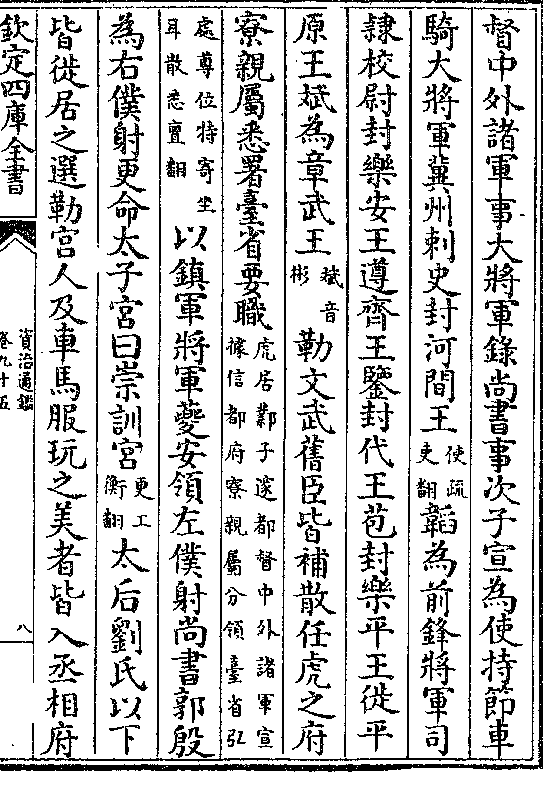 督中外諸軍事大將軍錄尚書事次子宣為使持節車
騎大將軍冀州刺史封河間王使疏吏翻韜為前鋒將軍司
隸校尉封樂安王遵齊王鑒封代王苞封樂平王徙平
原王斌為章武王斌音彬勒文武舊臣皆補散任虎之府
寮親屬悉署臺省要職虎居鄴子邃都督中外諸軍宣據信都府寮親屬分領臺省弘
處尊位特寄坐耳散悉亶翻以鎮軍將軍夔安領左僕射尚書郭殷
為右僕射更命太子宮曰崇訓宮更工衡翻太后劉氏以下
皆徙居之選勒宮人及車馬服玩之美者皆入丞相府
欽定四庫全書
資治通鑑
卷九十五
八